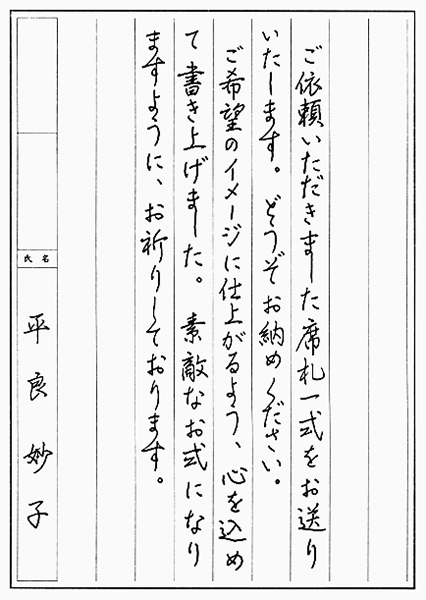 ご依頼いただきました席札一式をお送り
いたします。どうぞお納めください。
ご希望のイメージに仕上がるよう、心を込め
て書き上げました。素敵なお式になり
ますように、お祈りしております。
氏名
平良妙子